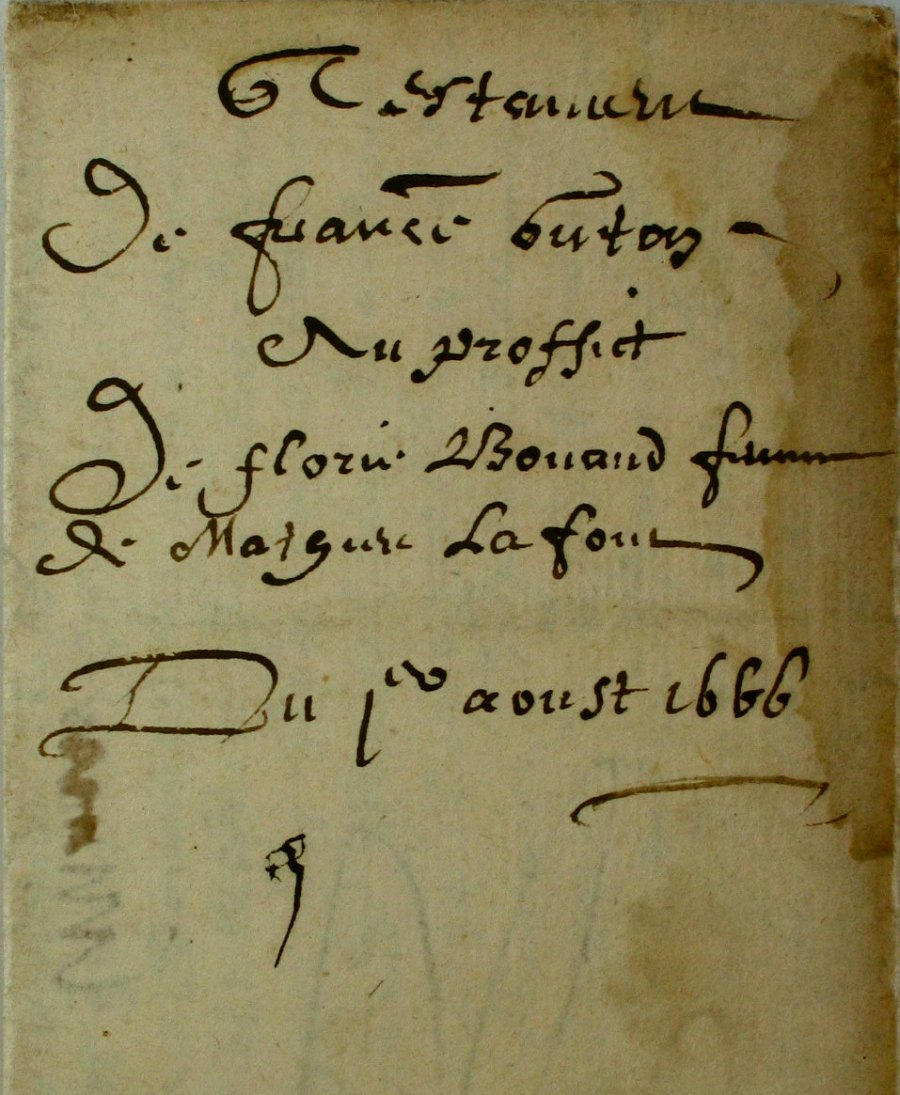 Testament
De france bouton
Au proffict
De florie Bonaud femme
de Mathieu Lafont
Du 1er aoust 1666